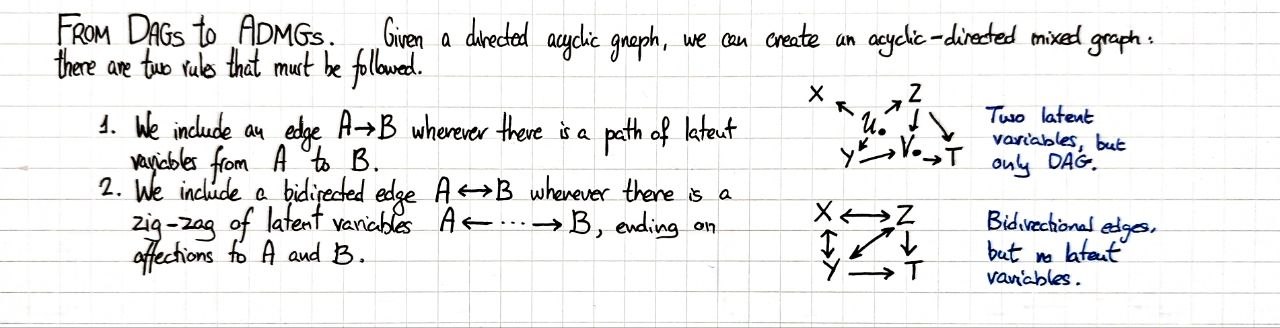 FROM DAGS to ADMGs. Given a directed acyclic graph, we can create an acyclic-directed mixed graph:
there are two rules that must be followed.
1. We include an edge A→B wherever there is a path of latent
variables from A to B.
2. We include a bidirected edge A↔B whenever there is a
zig-zag of latent variables A←⋯→B, ending on
affections to A and B.
X Z
U.
Y V. T
Two latent
variables, but
only DAG.
X ↔ Z
Y → T
Bidirectional edges,
but no latent
variables.